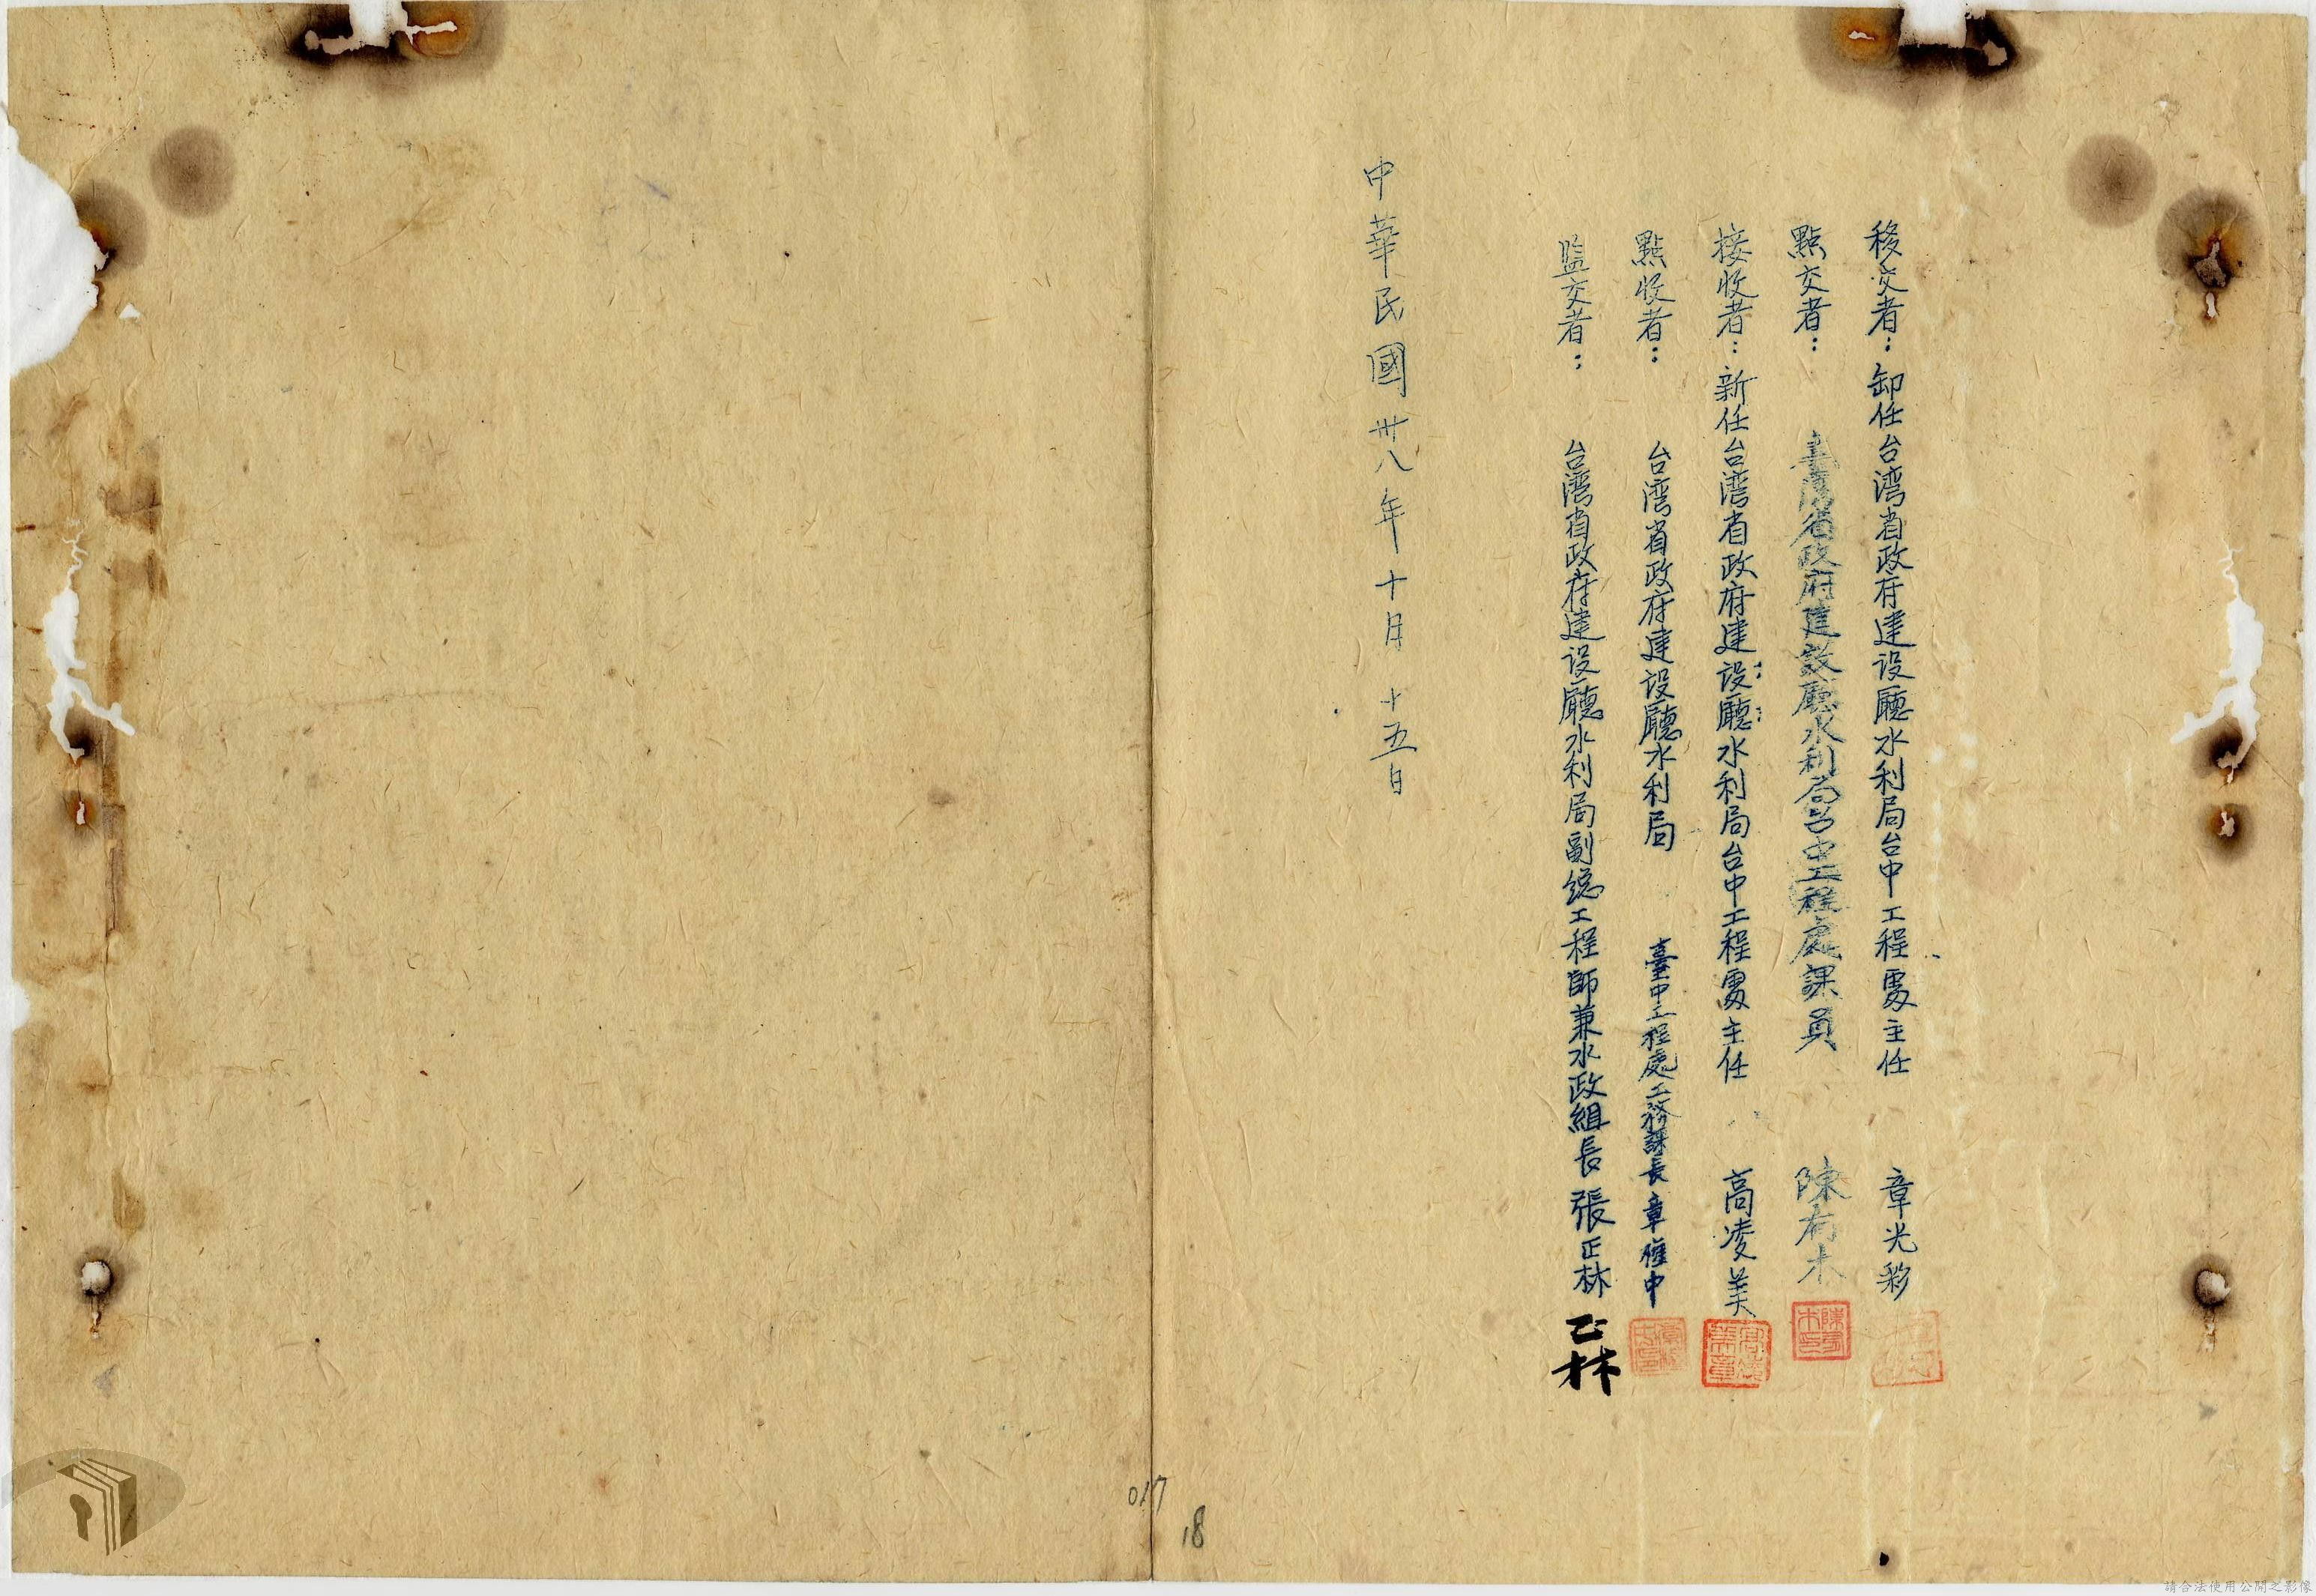 移交者：卸任台湾省政府建设廳水利局台中工程處主任 章光彩
點交者： 臺灣省政府建設廳水利局台中工程處課員 陳有木
接收者：新任台湾省政府建设廳水利局台中工程處主任 高凌美
點收者： 台湾省政府建设廳水利局 臺中工程處工務課長 章 中
监交者： 台湾省政府建设廳水利局副總工程師兼水政組長 張正林 正林
中華民國卅八年十月 十五日
017
18
請合法使用公開之影像